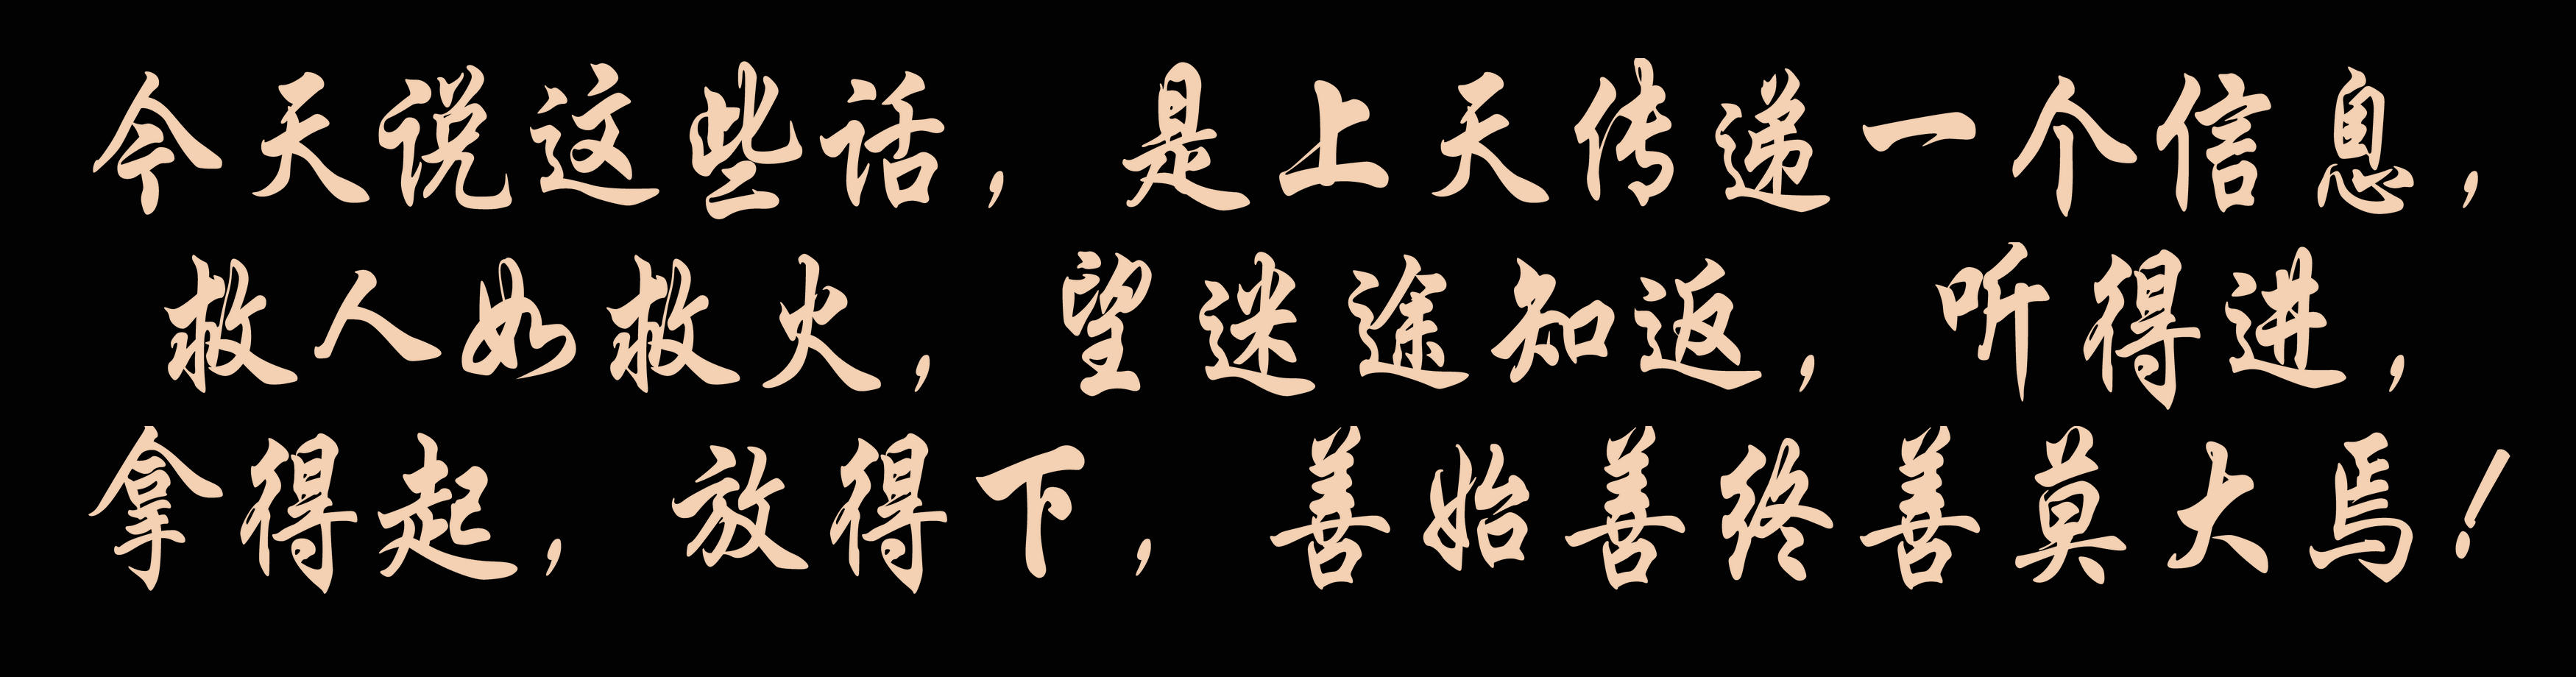 今天说这些话，是上天传递一个信息，
救人如救火，望迷途知返，听得进，
拿得起，放得下，善始善终善莫大焉！